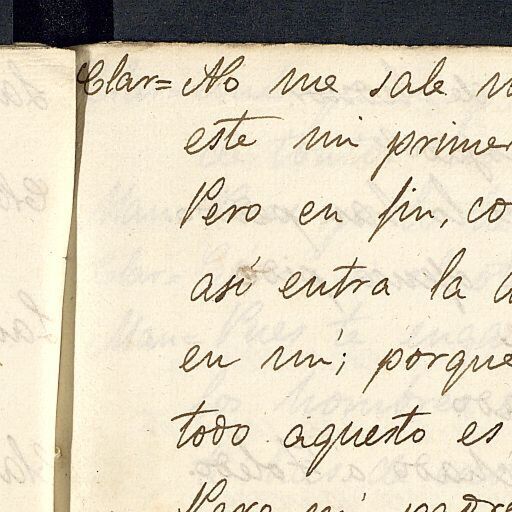 Clar= No me sale
este mi primer
Pero en fin, co
así entra la
en mí; porque
todo aquesto es
Pero mi padre